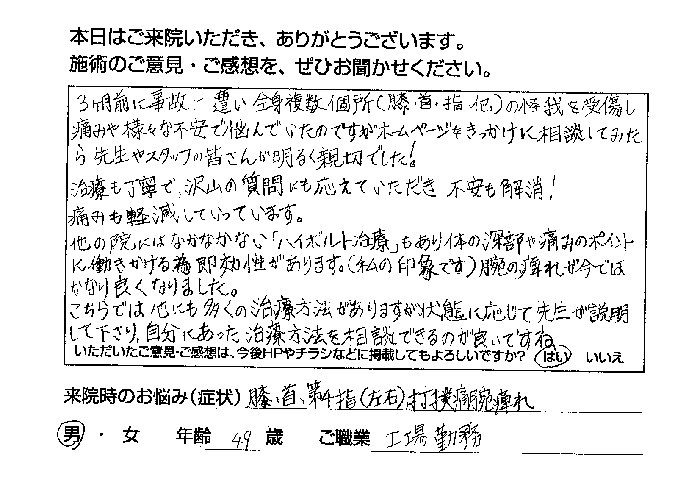 本日はご来院いただき、ありがとうございます。
施術のご意見・ご感想を、ぜひお聞かせください。
3ヶ月前に事故に遭い全身複数個所(膝・首・指・他)の怪我を受傷し
痛みや様々な不安で悩んでいたのですがホームページをきっかけに相談してみた
ら先生やスタッフの皆さんが明るく親切でした!
治療も丁寧で、沢山の質問にも応えていただき 不安も解消!
痛みも軽減していっています。
他の院にはなかなかない「ハイボルト治療」もあり体の深部や痛みのポイント
に働きかける為即効性があります。(私の印象です)腕の痺れが今では
かなり良くなりました。
こちらでは他にも多くの治療方法がありますが状態に応じて先生が説明
して下さり、自分にあった治療方法を相談できるのが良いですね
いただいたご意見・ご感想は、今後HPやチラシなどに掲載してもよろしいですか? はい いいえ
来院時のお悩み(症状) 膝・首、第4指(左右)打撲痛腕痺れ
男・女 年齢 49 歳 ご職業 工場勤務